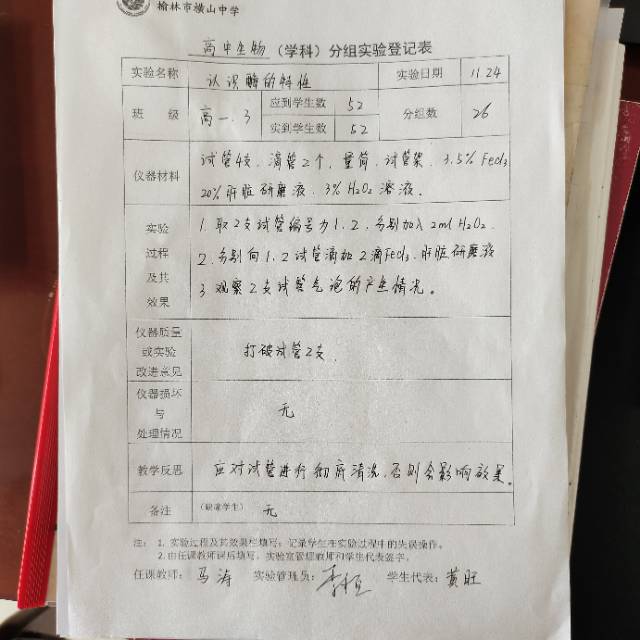 榆林市横山中学
高中生物（学科）分组实验登记表
实验名称 认识酶的特性 实验日期 11.24
班 级 高一.3 应到学生数 52 分组数 26
实到学生数 52
仪器材料 试管4支、滴管2个、量筒、试管架、3.5% FeCl₃
20%肝脏研磨液、3% H₂O₂ 溶液.
实验过程及其效果 1. 取2支试管编号为1.2，分别加入2ml H₂O₂.
2. 分别向1.2试管滴加2滴FeCl₃、肝脏研磨液
3 观察2支试管气泡的产生情况。
仪器质量或实验改进意见 打破试管2支.
仪器损坏与处理情况 无
教学反思 应对试管进行彻底清洗，否则会影响效果。
备注 (缺课学生) 无
注：1. 实验过程及其效果栏填写：记录学生在实验过程中的失误操作。
2.由任课教师课后填写，实验室管理教师和学生代表签字。
任课教师：马涛 实验管理员： 学生代表：黄旺